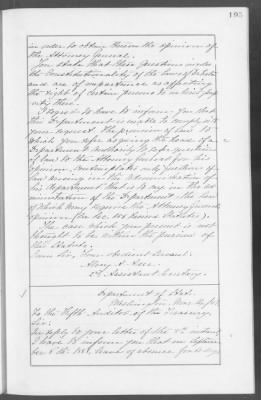 195
in order to obtain thereon the opinion of
the Attorney General.
You state that these questions under
the Constitutionality of the laws of Dakota
and are of importance as affecting
the right of certain persons to
I regret to have to inform you that
the Department is unable to comply with
your request. The provision of law to
which you refer requiring the head of a
Department to refer questions
of law to the Attorney General for his
opinion, contemplates only questions of
law arising in the administration of
his department that is to say in the ad
ministration of the Department the head
of which may require the Attorney General's
opinion (See Sec. Revised Statutes).
The case which you present is not
thought to be within the purview of
this Statute.
I am Sir, Your obedient Servant.
Assistant Secretary.
Department of State.
Washington
To the Fifth Auditor of the Treasury.
Sir:
In reply to your letter of the instant,
I have to inform you that on Septem
ber 8th 1881, leave of absence for days